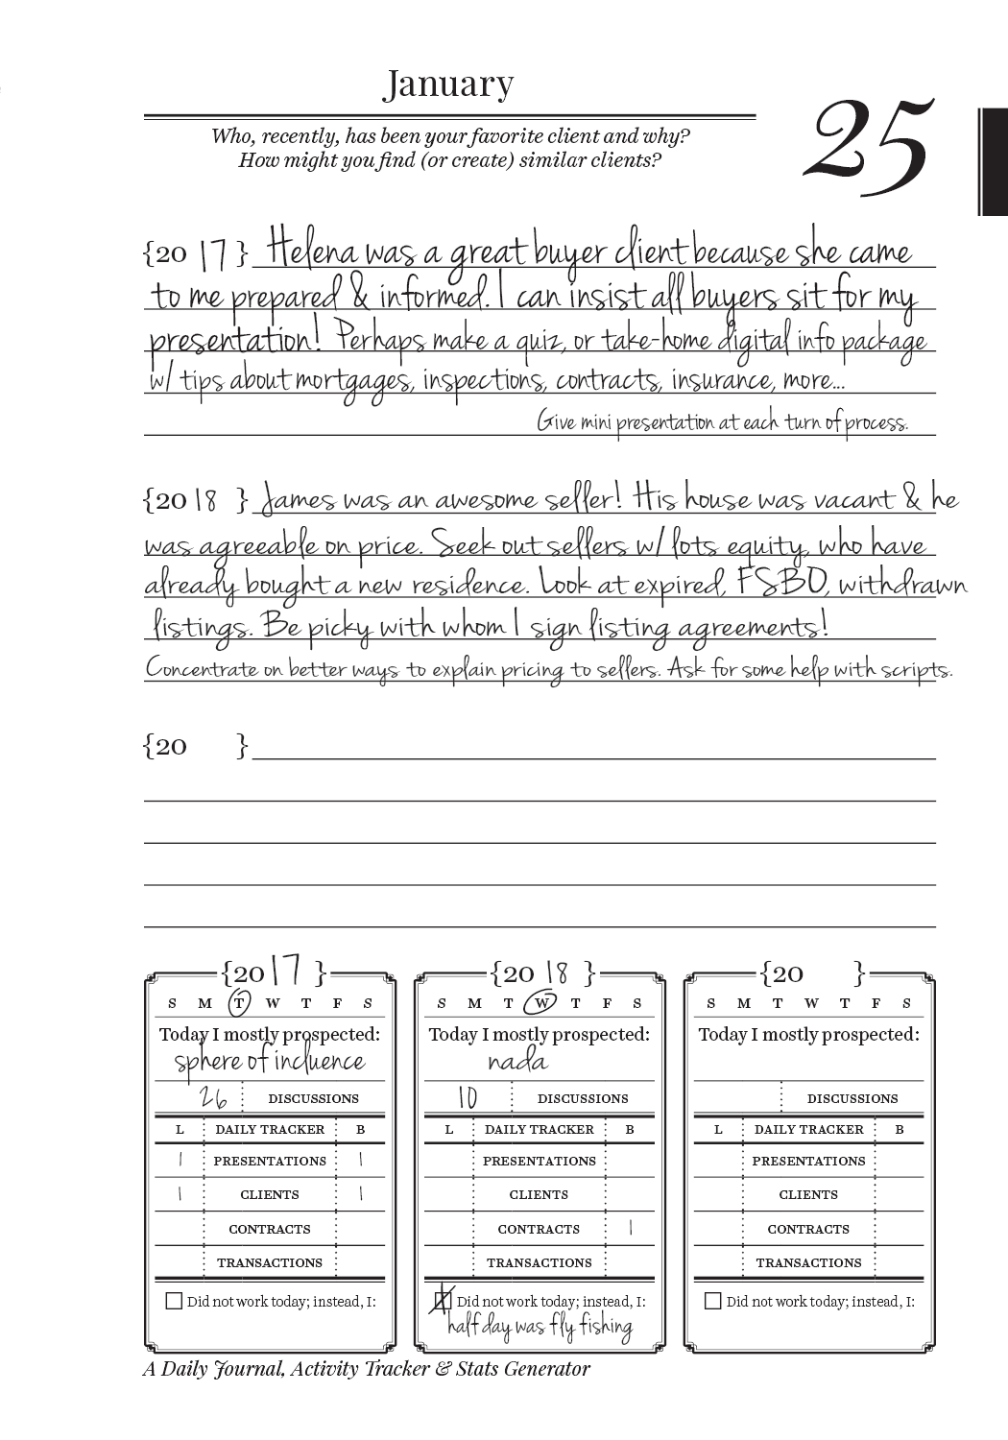 January
25
Who, recently, has been your favorite client and why?
How might you find (or create) similar clients?
{20 17 } Helena was a great buyer client because she came
to me prepared & informed. I can insist all buyers sit for my
presentation! Perhaps make a quiz, or take-home digital info package
w/ tips about mortgages, inspections, contracts, insurance, more...
Give mini presentation at each turn of process.
{20 18 } James was an awesome seller! His house was vacant & he
was agreeable on price. Seek out sellers w/ lots equity, who have
already bought a new residence. Look at expired, FSBO, withdrawn
listings. Be picky with whom I sign listing agreements!
Concentrate on better ways to explain pricing to sellers. Ask for some help with scripts.
{20 }
{20 17 }
S M T W T F S
Today I mostly prospected:
sphere of incluence
26 DISCUSSIONS
L DAILY TRACKER B
1 PRESENTATIONS 1
1 CLIENTS 1
CONTRACTS
TRANSACTIONS
Did not work today; instead, I:
{20 18 }
S M T W T F S
Today I mostly prospected:
nada
10 DISCUSSIONS
L DAILY TRACKER B
PRESENTATIONS
CLIENTS
CONTRACTS 1
TRANSACTIONS
Did not work today; instead, I:
half day was fly fishing
{20 }
S M T W T F S
Today I mostly prospected:
DISCUSSIONS
L DAILY TRACKER B
PRESENTATIONS
CLIENTS
CONTRACTS
TRANSACTIONS
Did not work today; instead, I:
A Daily Journal, Activity Tracker & Stats Generator